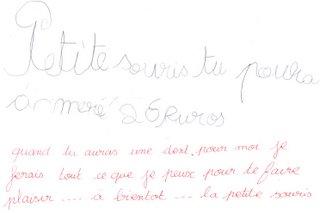 Petite souris tu poura
à mené 26 Euros
quand tu auras une dent pour moi je
ferais tout ce que je peux pour te faire
plaisir .... à bientot ... la petite souris